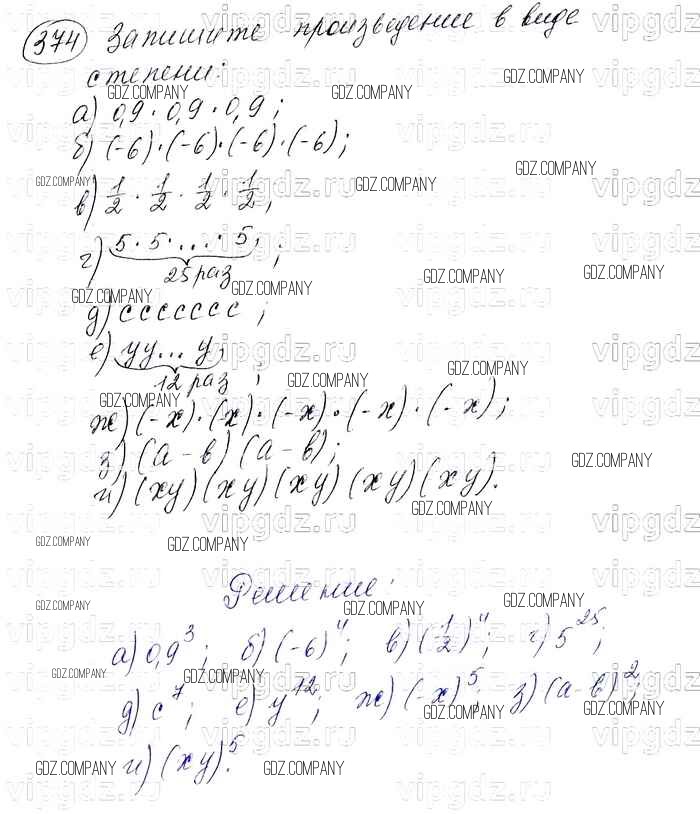 374 Запишите произведение в виде
степени:
а) 0,9 · 0,9 · 0,9;
б) (-6)·(-6)·(-6)·(-6);
в) 1/2 · 1/2 · 1/2 · 1/2;
г) 5·5·...·5, ;
25 раз
д) ccccccc ;
е) yy... y, ;
12 раз
ж) (-x)·(x)·(-x)·(-x)·(-x);
з) (a-b)(a-b);
и) (xy)(xy)(xy)(xy)(xy).
Решение:
а) 0,9³; б) (-6)⁴; в) (1/2)⁴; г) 5²⁵;
д) c⁷; е) y¹²; ж) (-x)⁵; з) (a-b)²;
и) (xy)⁵.
GDZ.COMPANY
vipgdz.ru